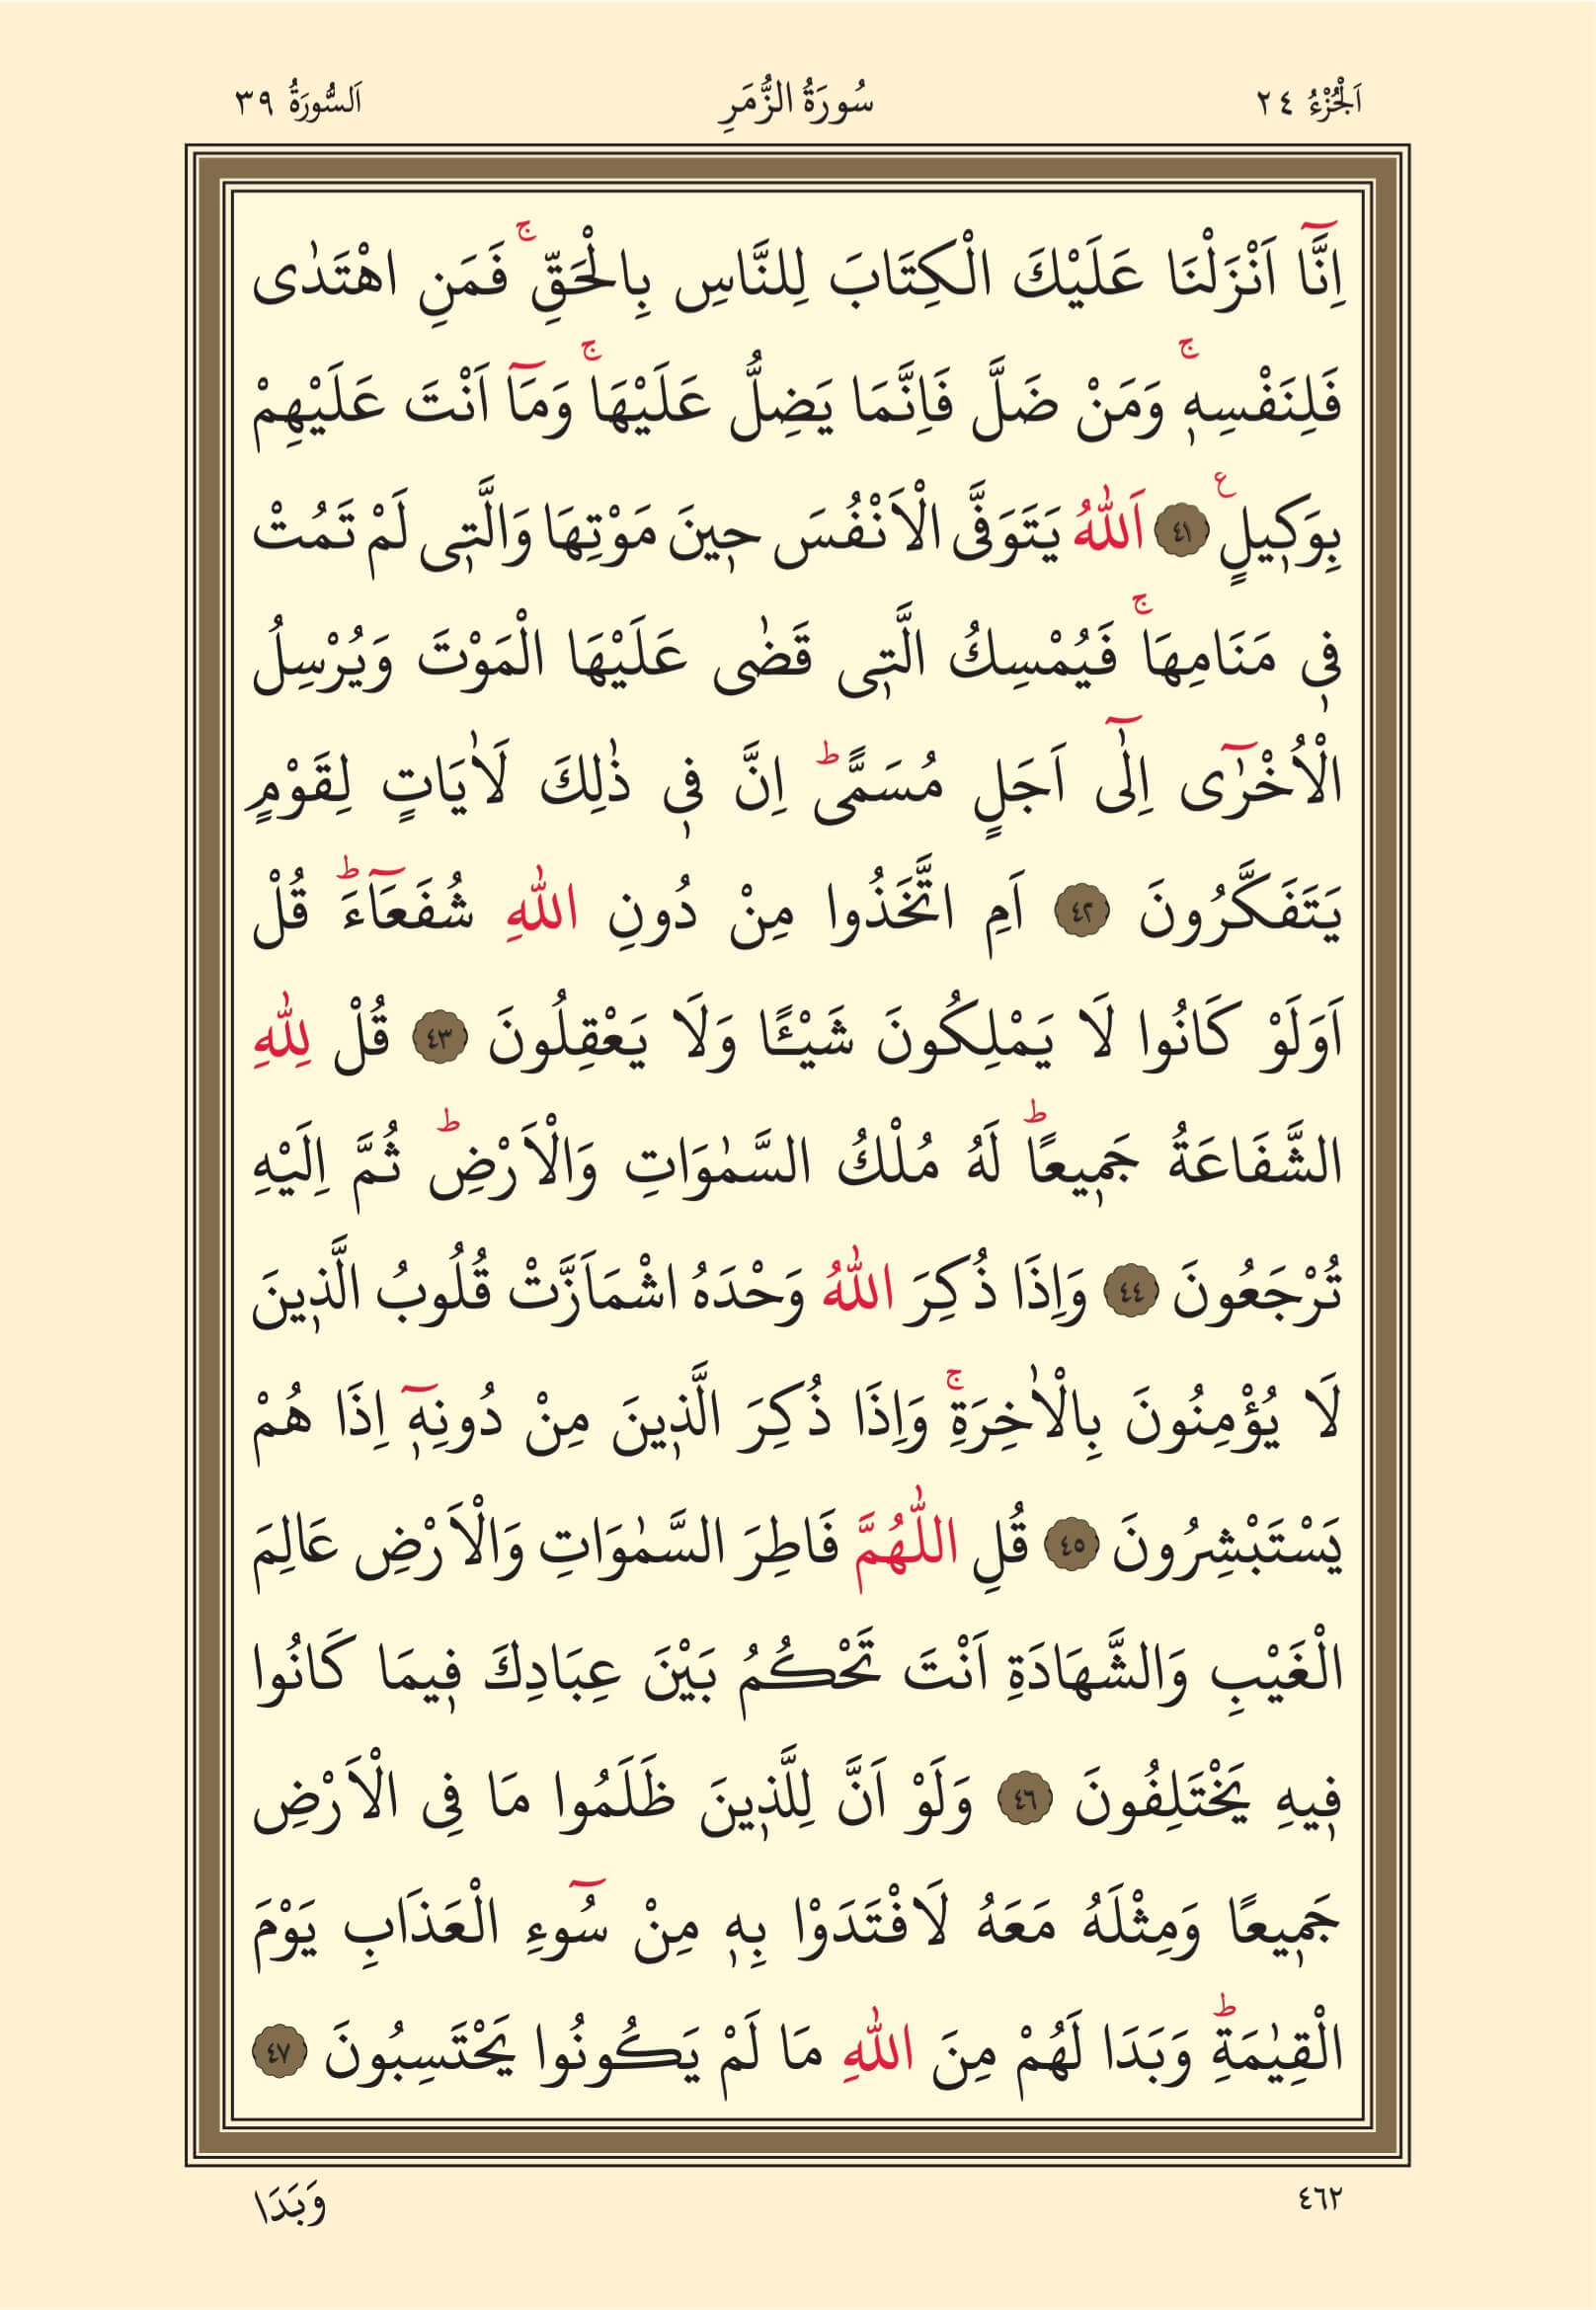 اَلْجُزْءُ ٢٤
سُورَةُ الزُّمَرِ
اَلسُّورَةُ ٣٩
اِنَّٓا اَنْزَلْنَا عَلَيْكَ الْكِتَابَ لِلنَّاسِ بِالْحَقِّۚ فَمَنِ اهْتَدٰى
فَلِنَفْسِه۪ۚ وَمَنْ ضَلَّ فَاِنَّمَا يَضِلُّ عَلَيْهَاۚ وَمَٓا اَنْتَ عَلَيْهِمْ
بِوَك۪يلٍ۟ ٤١ اَللّٰهُ يَتَوَفَّى الْاَنْفُسَ ح۪ينَ مَوْتِهَا وَالَّت۪ى لَمْ تَمُتْ
ف۪ى مَنَامِهَاۚ فَيُمْسِكُ الَّت۪ى قَضٰى عَلَيْهَا الْمَوْتَ وَيُرْسِلُ
الْاُخْرٰٓى اِلٰٓى اَجَلٍ مُسَمًّىۜ اِنَّ ف۪ى ذٰلِكَ لَاٰيَاتٍ لِقَوْمٍ
يَتَفَكَّرُونَ ٤٢ اَمِ اتَّخَذُوا مِنْ دُونِ اللّٰهِ شُفَعَٓاءَۜ قُلْ
اَوَلَوْ كَانُوا لَا يَمْلِكُونَ شَيْـًٔا وَلَا يَعْقِلُونَ ٤٣ قُلْ لِلّٰهِ
الشَّفَاعَةُ جَم۪يعًاۜ لَهُ مُلْكُ السَّمٰوَاتِ وَالْاَرْضِۜ ثُمَّ اِلَيْهِ
تُرْجَعُونَ ٤٤ وَاِذَا ذُكِرَ اللّٰهُ وَحْدَهُ اشْمَاَزَّتْ قُلُوبُ الَّذ۪ينَ
لَا يُؤْمِنُونَ بِالْاٰخِرَةِۚ وَاِذَا ذُكِرَ الَّذ۪ينَ مِنْ دُونِه۪ٓ اِذَا هُمْ
يَسْتَبْشِرُونَ ٤٥ قُلِ اللّٰهُمَّ فَاطِرَ السَّمٰوَاتِ وَالْاَرْضِ عَالِمَ
الْغَيْبِ وَالشَّهَادَةِ اَنْتَ تَحْكُمُ بَيْنَ عِبَادِكَ ف۪يمَا كَانُوا
ف۪يهِ يَخْتَلِفُونَ ٤٦ وَلَوْ اَنَّ لِلَّذ۪ينَ ظَلَمُوا مَا فِى الْاَرْضِ
جَم۪يعًا وَمِثْلَهُ مَعَهُ لَافْتَدَوْا بِه۪ مِنْ سُٓوءِ الْعَذَابِ يَوْمَ
الْقِيٰمَةِۜ وَبَدَا لَهُمْ مِنَ اللّٰهِ مَا لَمْ يَكُونُوا يَحْتَسِبُونَ ٤٧
٤٦٢
وَبَدَا